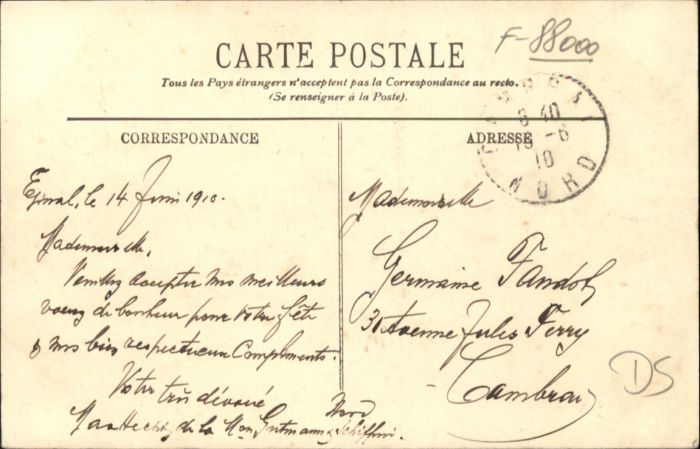 F-88000
CARTE POSTALE
Tous les Pays étrangers n'acceptent pas la Correspondance au recto.
(Se renseigner à la Poste).
CORRESPONDANCE
ADRESSE
8 40
15 -6
10
NORD
Epinal, le 14 Juin 1910.
Mademoiselle,
Veuillez accepter mes meilleurs
voeux de bonheur pour votre fête
& mes bien respectueux Compliments.
Votre très dévoué
Max Hecht, de la Mon Gutmann & Schiffrin.
Mademoiselle
Germaine Fandot
31 Avenue Jules Ferry
Cambrai
Nord
DS